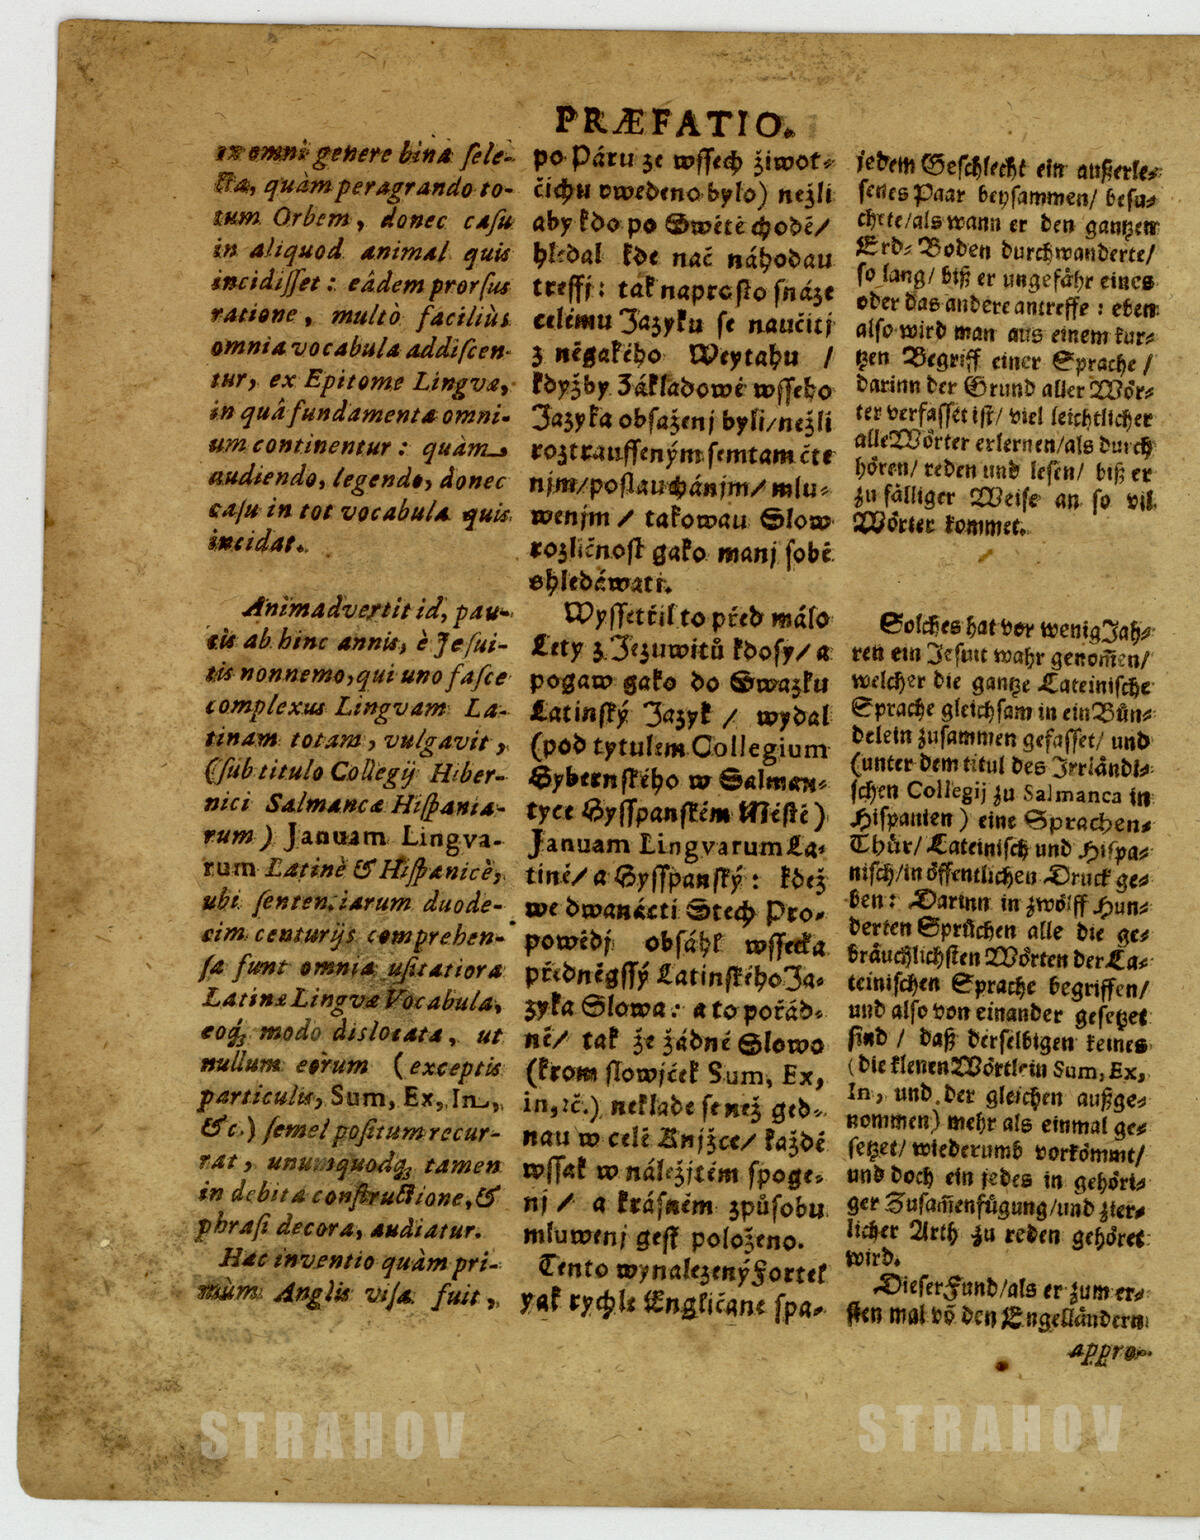 PRÆFATIO.
ex omni genere binæ sele-
cta, quàm peragrando to-
tum Orbem, donec casu
in aliquod animal quis
incidisset: eâdem prorsus
ratione, multò faciliùs
omnia vocabula addiscen-
tur, ex Epitome Lingvæ,
in quâ fundamenta omni-
um continentur: quàm
audiendo, legendo, donec
casu in tot vocabula quis
incidat.
Animadvertit id, pau-
cis ab hinc annis, è Jesui-
tis nonnemo, qui uno fasce
complexus Lingvam La-
tinam totam, vulgavit,
(sub titulo Collegij Hiber-
nici Salmancæ Hispania-
rum) Januam Lingva-
rum Latinè & Hispanicè,
ubi sententiarum duode-
cim centurijs comprehen-
sa sunt omnia usitatiora
Latinæ Lingvæ Vocabula,
eoq; modo dislocata, ut
nullum eorum (exceptis
particulis, Sum, Ex, In,
&c.) semel positum recur-
rat, unumquodq; tamen
in debita constructione, &
phrasi decora, audiatur.
Hac inventio quàm pri-
mùm Anglis visa fuit,
po Páru ze wssech žiwot-
čichu uwedeno bylo) nežli
aby kdo po Swětě chodě/
hledal kde nač náhodau
treffj: tak naprosto snáze
celému Jazyku se naučiti
z něgakého Weytahu /
kdyžby Základowé wsseho
Jazyka obsaženj byli/nežli
roztrausseným semtam čte
njm/poslauchánjm/ mlu-
wenjm / takowau Slow
rozličnost gako manj sobě
shledáwati.
Wyssetřil to před málo
Lety z Jezuwitů kdosy/ a
pogaw gako do Swazku
Latinský Jazyk / wydal
(pod tytulem Collegium
Hybernského w Salman-
tyce Hysspanském Městě)
Januam Lingvarum La-
tině/ a Hysspanský: kdež
we dwanácti Stech Pro-
powědj obsáhl wssecka
přědněgssý Latinského Ja-
zyka Slowa: a to pořád-
ně/ tak že žádné Slowo
(krom slowjček Sum, Ex,
in, ꝛc.) neklade se než ged-
nau w celé Knjžce/ každé
wssak w náležjtém spoge-
nj / a krásném způsobu
mluwenj gest položeno.
Tento wynalezený Fortel
yak rychle Engličane spa-
jedem Geschlecht ein außerle-
senes Paar beysammen/ besu-
chete/als wann er den gantzen
Erd-Boden durchwanderte/
so lang/ biß er ungefähr eines
oder das andere antreffe: eben
also wird man aus einem kur-
tzen Begriff einer Sprache /
darinn der Grund aller Wör-
ter verfasset ist/ viel leichtlicher
alle Wörter erlernen/als durch
hören/ reden und lesen/ biß er
zu fälliger Weise an so vil
Wörter kommet.
Solches hat vor wenig Jah-
ren ein Jesuit wahr genom̃en/
welcher die gantze Lateinische
Sprache gleichsam in ein Bün-
delein zusammen gefasset/ und
(unter dem titul des Irrländi-
schen Collegij zu Salmanca in
Hispanien) eine Sprachen-
Thür/ Lateinisch und Hispa-
nisch/in öffentlichen Druck ge-
ben: Darinn in zwölff Hun-
derten Sprüchen alle die ge-
bräuchlichsten Wörten der La-
teinischen Sprache begriffen/
und also von einander gesetzet
sind / daß derselbigen keines
(die klenen Wörtlein Sum, Ex,
In, und der gleichen außge-
nommen) mehr als einmal ge-
setzet/ wiederumb vorkömmt/
und doch ein jedes in gehöri-
ger Zusam̃enfügung/und zier-
licher Arth zu reden gehöret
wird.
Dieser Fund/als er zum er-
sten mal võ den Engelländern
appro-
STRAHOV
STRAHOV